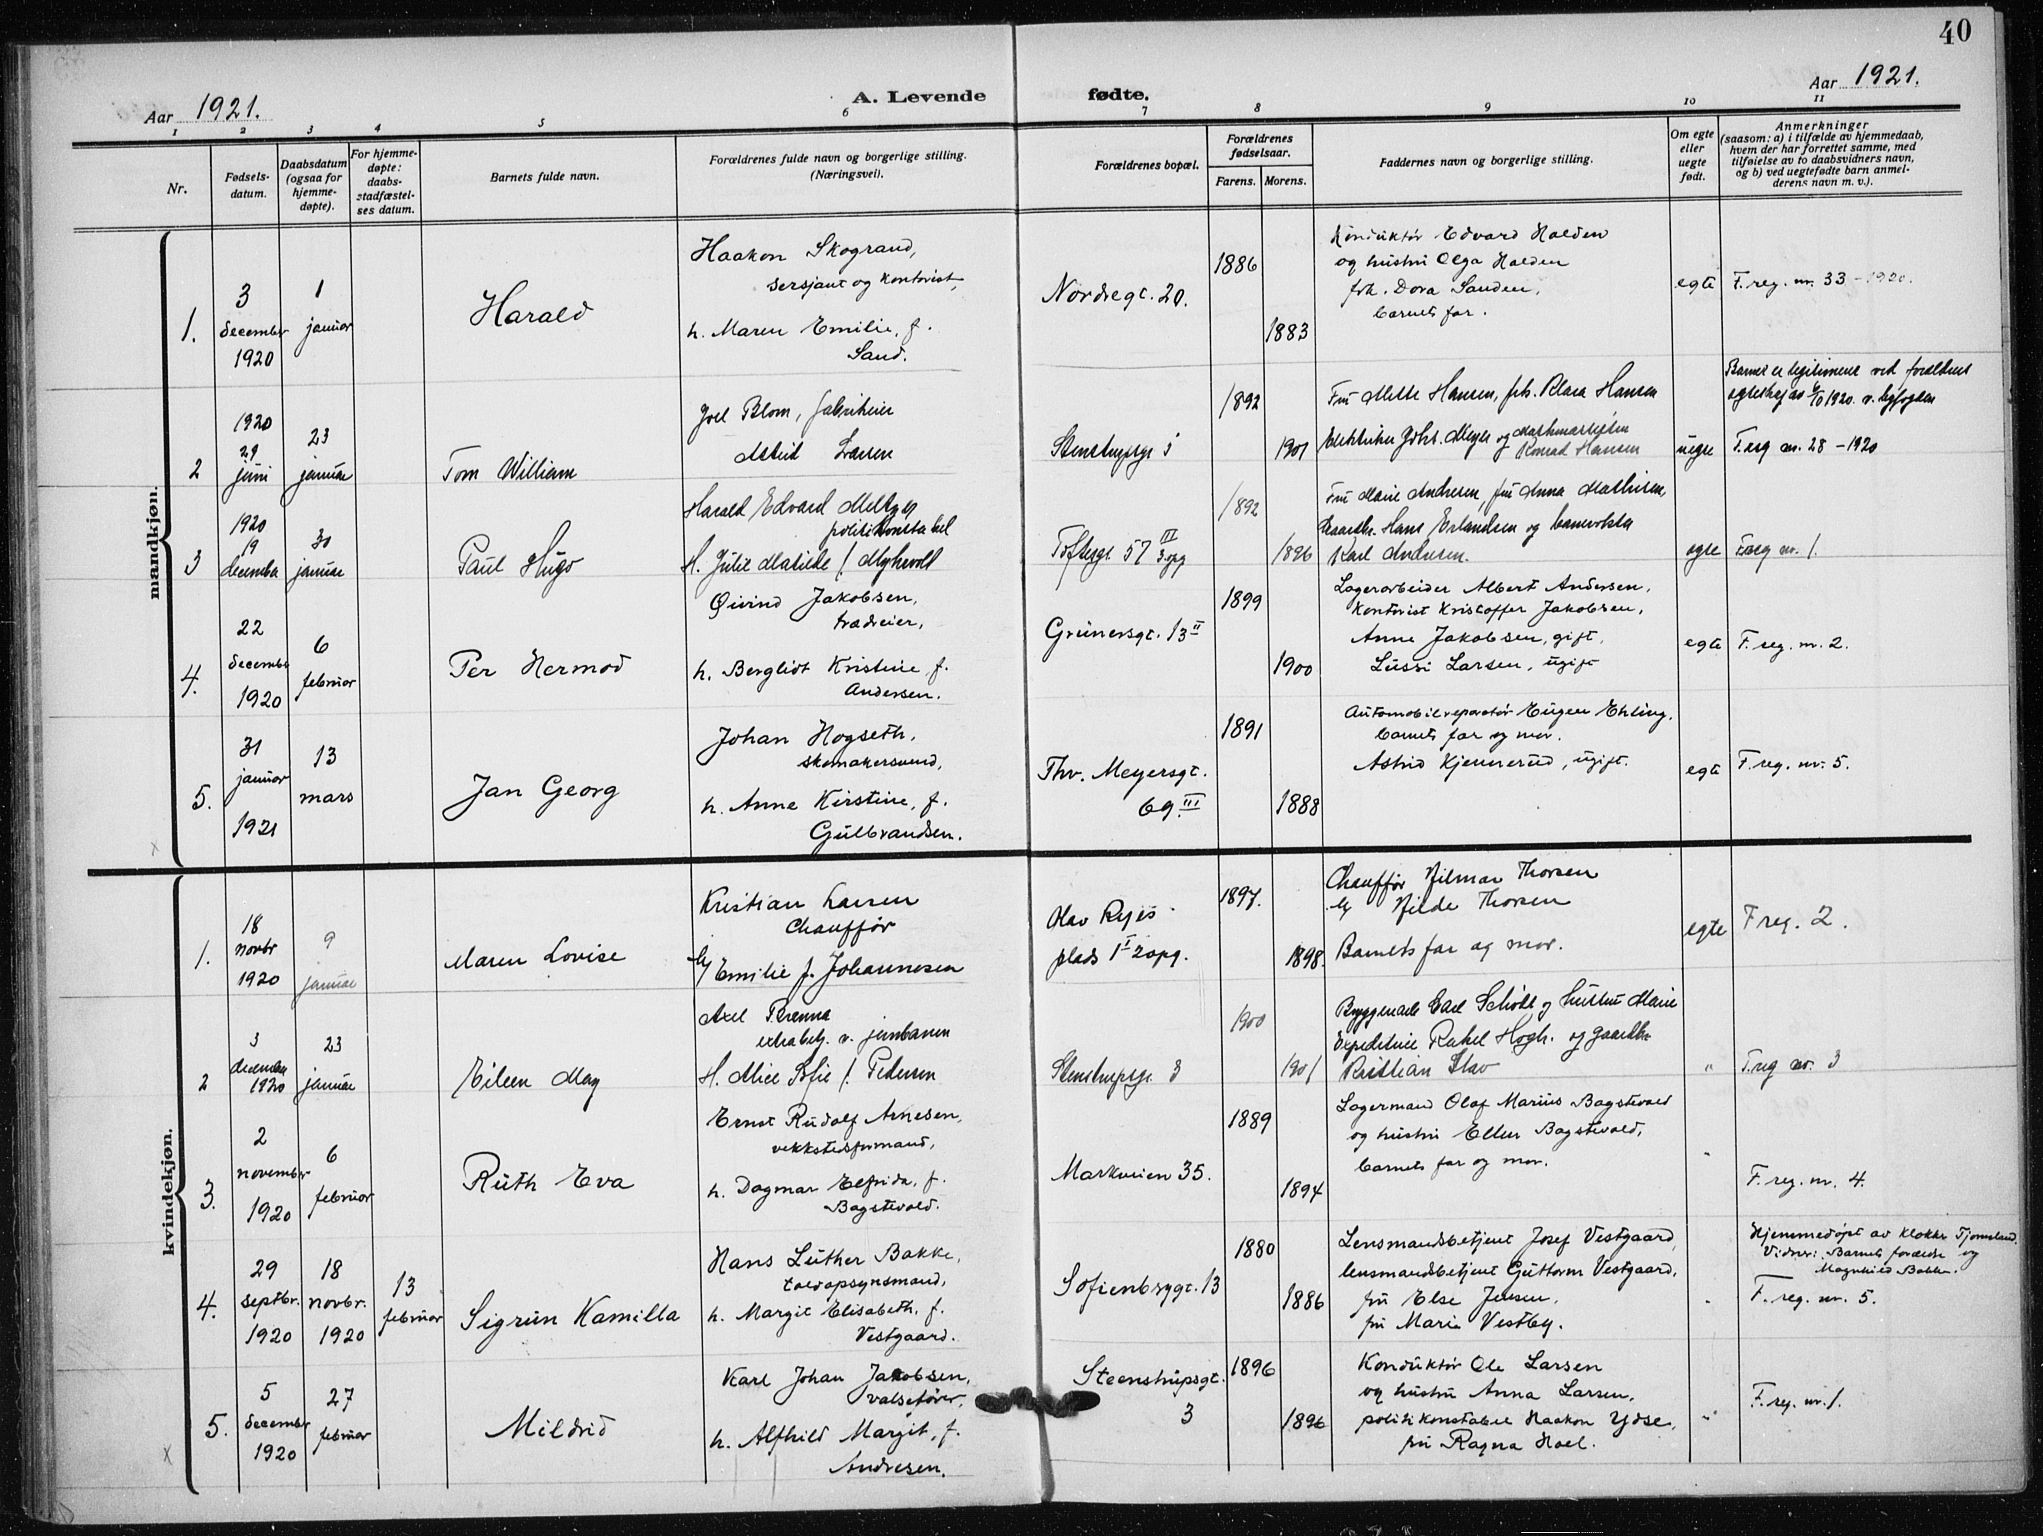 40
Aar 1921.
A. Levende fødte.
Aar 1921.
1 2 3 4 5 6 7 8 9 10 11
Nr.
Fødsels-
datum.
Daabsdatum
(ogsaa for
hjemme-
døpte).
For hjemme-
døpte:
daabs-
stadfæstel-
ses datum.
Barnets fulde navn.
Forældrenes fulde navn og borgerlige stilling.
(Næringsvei).
Forældrenes bopæl.
Forældrenes
fødselsaar.
Farens. Morens.
Faddernes navn og borgerlige stilling.
Om egte
eller
uegte
født.
Anmerkninger
(saasom: a) i tilfælde av hjemmedaab,
hvem der har forrettet samme, med
tilføielse av to daabsvidners navn,
og b) ved uegtefødte barn anmel-
derens navn m. v.).
mandkjøn.
1.
3
december
1920
1
januar
Harald
Haakon Skogrand,
sersjant og kontorist,
h. Maren Emilie, f.
Sand.
Nordregt. 20.
1886
1883
Konduktør Edvard Halden
og hustru Olga Halden
frk. Dora Sanden,
barnets far.
egte
F. reg. nr. 33 - 1920.
2
1920
29
juni
23
januar
Tom William
Joel Blom, fabrikeier
Astrid Larsen
Stenstrupsgt 5
1892
1901
Fru Mette Hansen, frk. Klara Hansen
Elektriker Johs. Meyer og
Konrad Hansen
uegte
Barnet er legitimeret ved forældres
egteskap av 6/10 1920. v. byfogden
F. reg nr. 28 - 1920
3
1920
19
december
30
januar
Paul Hugo
Harald Edvard
politikonstabel
H. Julie Matilde f. Myhrvold
Toftesgt 57 III 3 opg
1892
1896
Fru Marie Andresen, fru Anna Mathisen,
Hans Erlandsen og
Karl Andresen.
egte
F. reg nr. 1.
4.
22
december
1920
6
februar
Per Hermod
Øivind Jakobsen,
trædreier,
h. Berglidt Kristine, f.
Andersen.
Grünersgt. 13 II
1899
1900
Lagerarbeider Albert Andersen,
Kontorist Kristoffer Jakobsen,
Anne Jakobsen, gift,
Lussi Larsen, ugift
egte
F. reg. nr. 2.
5.
31
januar
1921
13
mars
Jan Georg
Johan Hogseth,
skomakersvend,
h. Anne Kirstine, f.
Gulbrandsen.
Thv. Meyersgt.
69 III
1891
1888
Automobilreparatør Eugen Ehling,
barnets far og mor.
Astrid Kjennerud, ugift.
egte
F. reg. nr. 5.
x
kvindekjøn.
1.
18
novbr
1920
9
januar
Maren Lovise
Kristian Larsen
Chauffør
Emilie f. Johannesen
Olav Ryes
plads 1 I 2 opg.
1897.
1898.
Chauffør Hilmar Thorsen
Hilde Thorsen
Barnets far og mor.
egte
F reg. 2.
2
3
december
1920
23
januar
Eileen May
Axel Brenna
extrabetj. v. jernbanen
H. Alice Sofie f. Pedersen
Stenstrupsgt 3
1900
1901
Karl Schött og hustru Marie
Expeditrice Rakel Hogh. og
Kristian Stav
"
F. reg nr. 3
3.
2
november
1920
6
februar
Ruth Eva
Ernst Rudolf Arnesen,
verkstedsformand,
h. Dagmar Elfrida, f.
Bagstevold.
Markveien 35.
1889
1894
Lagermand Olaf Marius Bagstevold
og hustru Ellen Bagstevold,
barnets far og mor.
"
F. reg. nr. 4.
4.
29
septbr.
1920
18
novbr.
1920
13
februar
Sigrun Kamilla
Hans Luther Bakke,
toldopsynsmand,
h. Margit Elisabeth, f.
Vestgaard.
Sofienbergt. 13
1880
1886
Lensmandsbetjent Josef Vestgaard,
lensmandsbetjent Guttorm Vestgaard,
fru Else Jensen,
fru Marie Vestby.
"
Hjemmedøpt av klokker Tjomsland.
Vidner: Barnets forældre og
Magnhild Bakke.
F. reg. nr. 5.
5.
5
december
1920
27
februar
Mildrid
Karl Johan Jakobsen,
valsefører,
h. Alfhild Margit, f.
Andresen.
Steenstrupsgt.
3
1896
1896
Konduktør Ole Larsen
og hustru Anna Larsen,
politikonstabel Haakon Ydse,
fru Ragna Hoel.
"
F. reg. nr. 1.
x